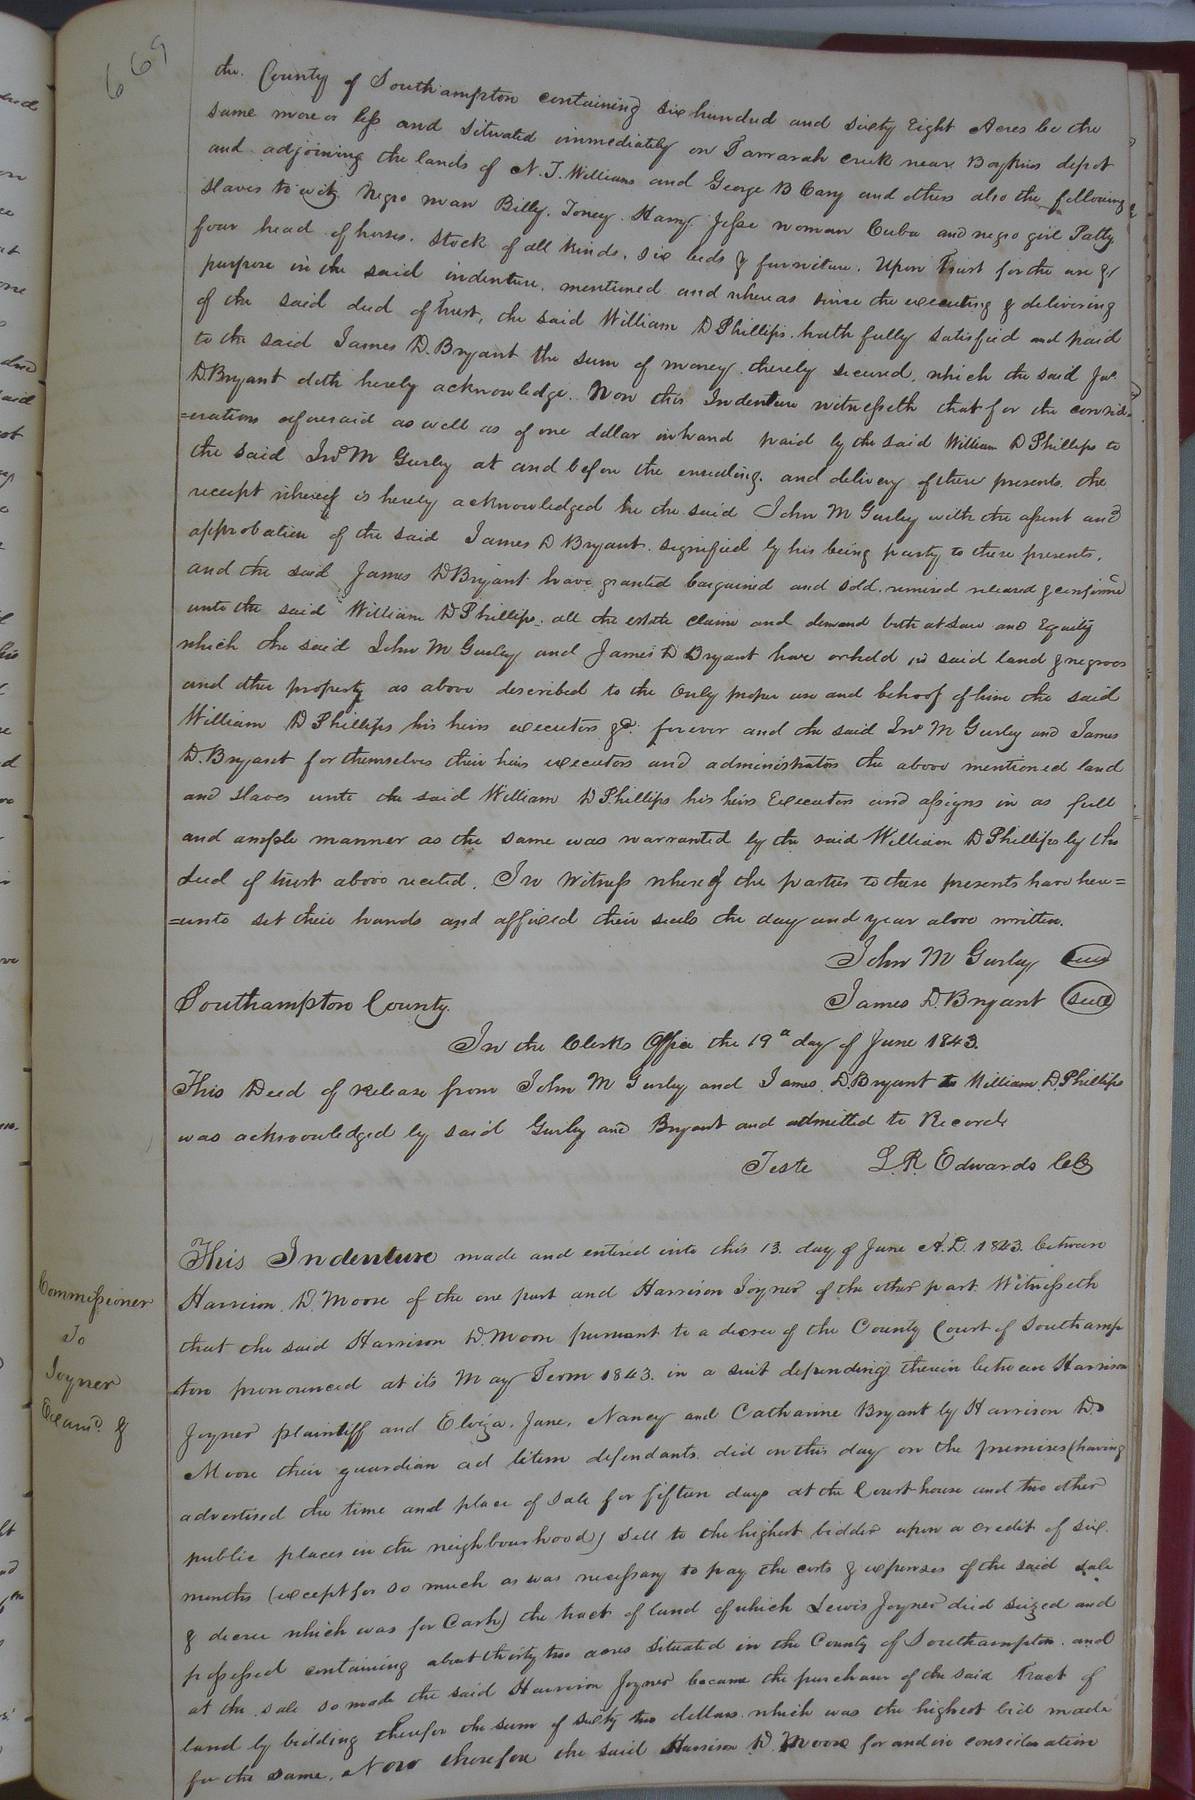 669
the County of Southampton containing six hundred and sixty Eight Acres be the
same more or less and situated immediately on Tarrarah creek near Boykins depot
and adjoining the lands of N. T. Williams and George B Cary and others also the following
slaves to wit, Negro man Billy, Toney, Harry, Jesse woman Cuba and negro girl Patty
four head of horses, stock of all kinds, six beds & furniture, Upon Trust for the use &
purpose in the said indenture, mentioned and whereas since the executing & delivering
of the said deed of trust, the said William D Phillips, hath fully satisfied and paid
to the said James D. Bryant the sum of money thereby secured, which the said Jas
D. Bryant doth hereby acknowledge. Now this Indenture witnesseth that for the consid=
=eration aforesaid as well as of one dollar in hand paid by the said William D Phillips to
the said Jno M Gurley at and before the ensealing, and delivery of these presents the
receipt whereof is hereby acknowledged he the said John M Gurley with the assent and
approbation of the said James D Bryant, signified by his being party to these presents,
and the said James D Bryant have granted bargained and sold, remised released & confirmd
unto the said William D Phillips, all the estate claim and demand both at Law and Equity
which the said John M Gurley and James D Bryant have or hold in said land & negroes
and other property as above described to the only proper use and behoof of him the said
William D Phillips his heirs executors &c. forever and the said Jno M Gurley and James
D. Bryant for themselves their heirs executors and administrators the above mentioned land
and slaves unto the said William D Phillips his heirs Executors and assigns in as full
and ample manner as the same was warranted by the said William D Phillips by the
deed of trust above recited. In Witness whereof the parties to these presents have here=
=unto set their hands and affixed their seals the day and year above written.
John M Gurley Seal
Southampton County. James D. Bryant Seal
In the Clerks Office the 19th day of June 1843.
This Deed of release from John M Gurley and James, D. Bryant to William D. Phillips
was acknowledged by said Gurley and Bryant and admitted to Record
Teste L. R. Edwards Clk
This Indenture made and entered into this 13. day of June A.D. 1843. between
Commissioner
To
Joyner
Examd. &
Harrison D. Moore of the one part and Harrison Joyner of the other part Witnesseth
that the said Harrison D. Moore pursuant to a decree of the County Court of Southamp
ton pronounced at its May Term 1843. in a suit depending therein between Harrison
Joyner plaintiff and Eliza, Jane, Nancy and Catharine Bryant by Harrison D.
Moore their guardian ad litem defendants did on this day on the premises (having
advertised the time and place of sale for fifteen days at the Court house and two other
public places in the neighbourhood) sell to the highest bidder upon a credit of six
months (except for so much as was necessary to pay the costs & expenses of the said sale
& decree which was for Cash) the tract of land of which Lewis Joyner died seized and
possessed containing about thirty two acres situated in the County of Southampton and
at the sale so made the said Harrison Joyner became the purchaser of the said tract of
land by bidding therefor the sum of sixty two dollars which was the highest bid made
for the same. Now therefore the said Harrison D. Moore for and in consideration